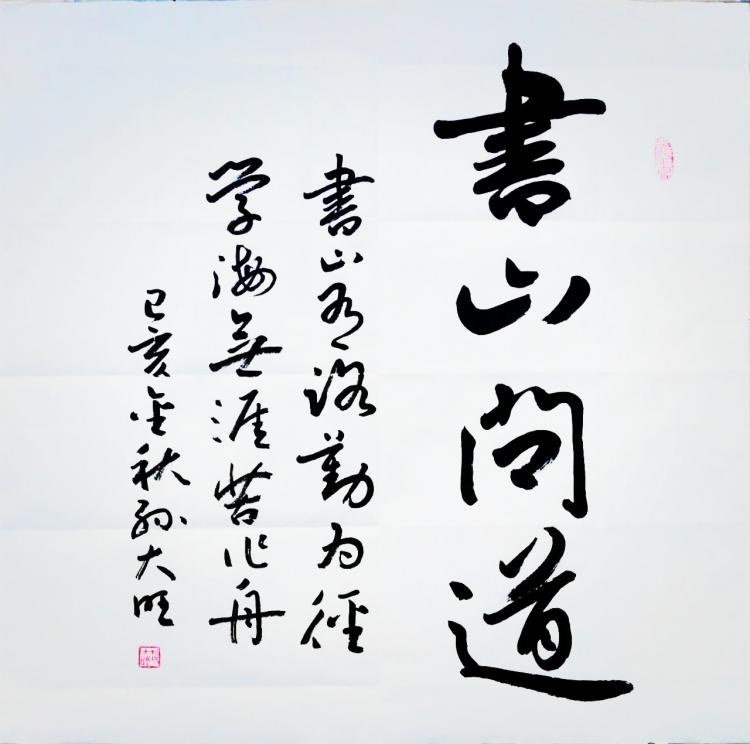 書山问道
書山有路勤为徑
学海無涯苦作舟
己亥金秋孙大旺